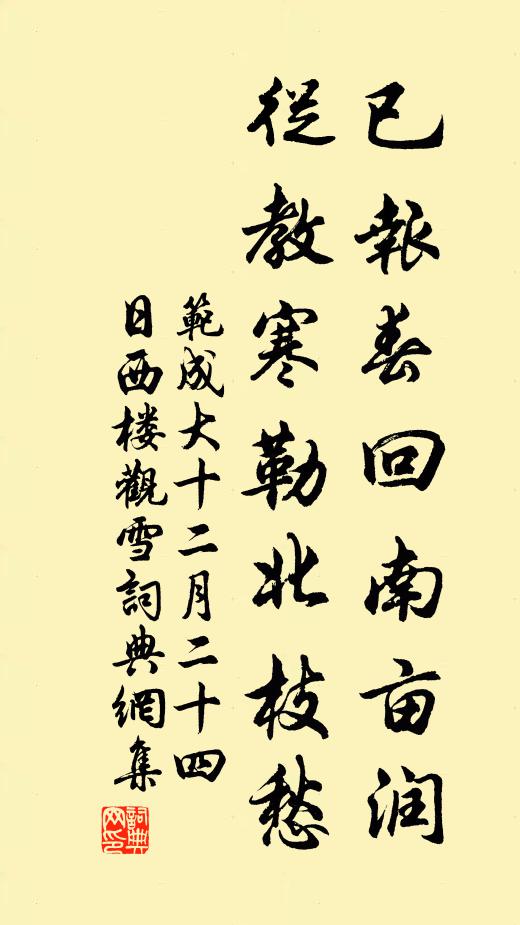 已報春回南亩润
從教寒勒北枝愁
範成大十二月二十四
日西楼觀雪詞典網集
詞典網印